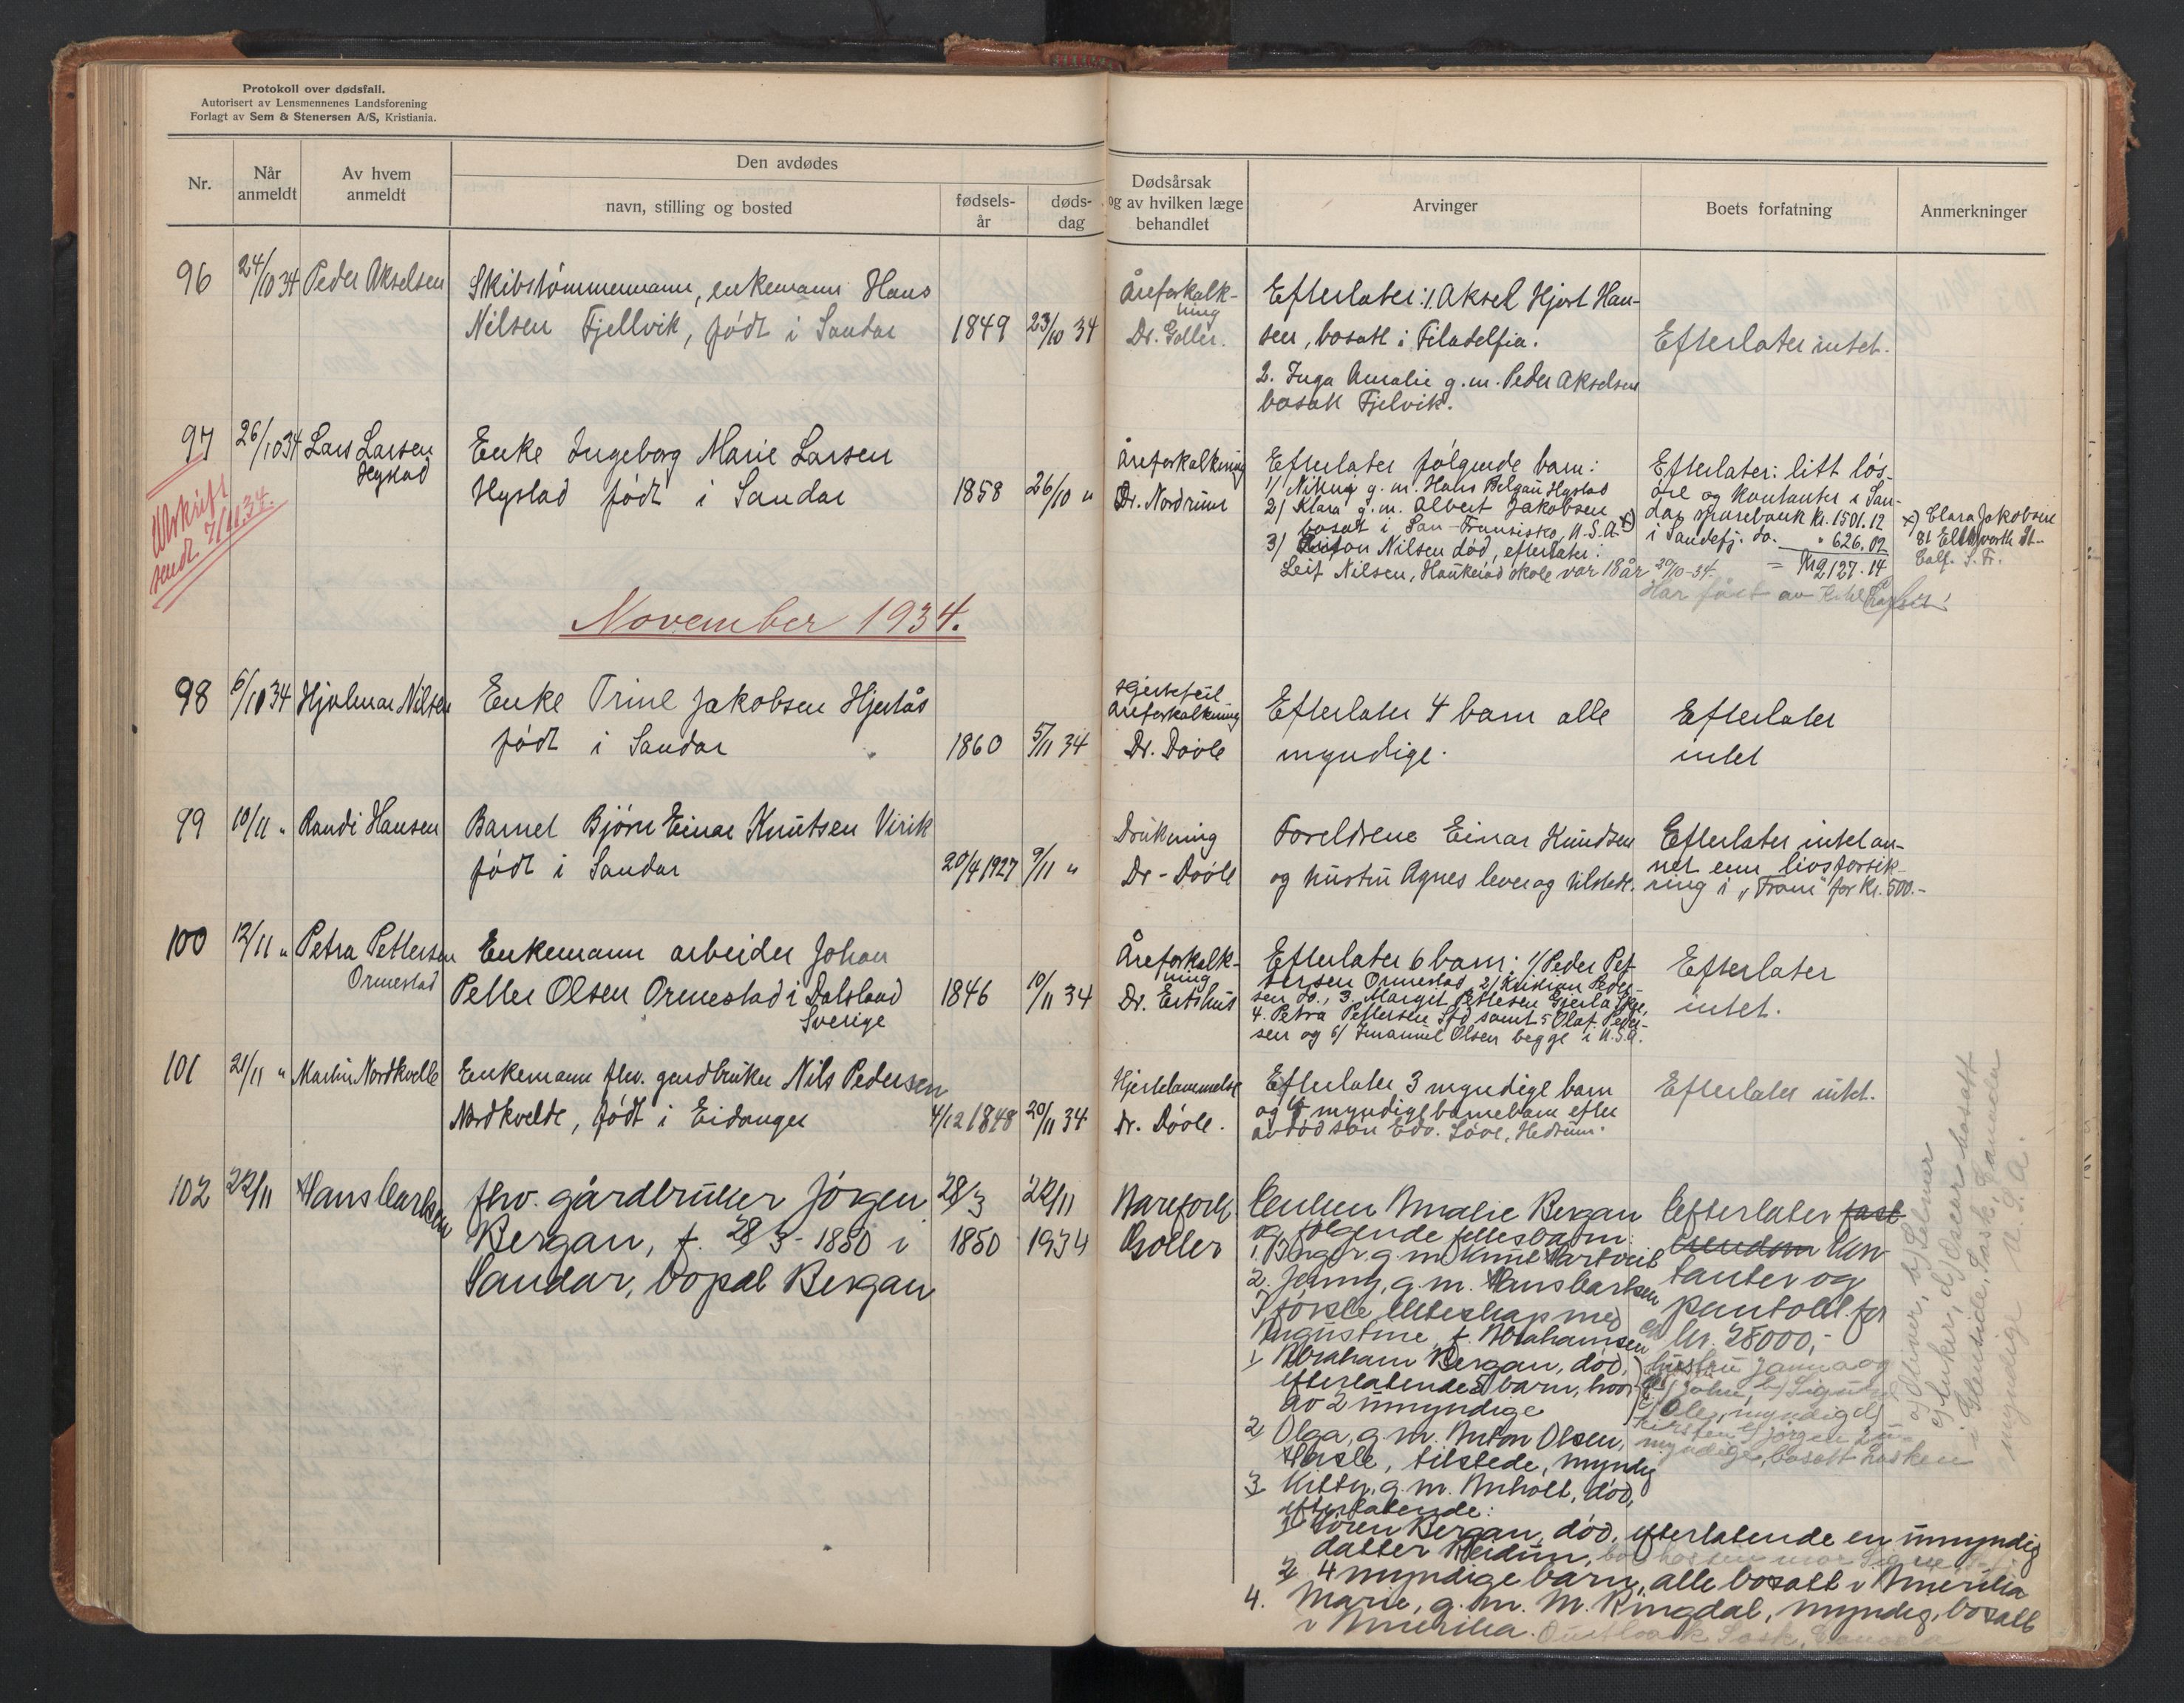 Protokoll over dødsfall.
Autorisert av Lensmennenes Landsforening
Forlagt av Sem & Stenersen A/S, Kristiania.
Nr.
Når anmeldt
Av hvem anmeldt
Den avdødes
navn, stilling og bosted
fødsels-år
døds-dag
Dødsårsak og av hvilken læge behandlet
Arvinger
Boets forfatning
Anmerkninger
96
24/10 34
Peder Akselsen
Skibstømmermann, enkemann Hans
Nilsen Fjellvik, født i Sandar
1849
23/10 34
Åreforkalk-
ning
Dr. Goller.
Efterlater: 1. Aksel Hjort Han-
sen, bosatt i Filadelfia.
2. Inga Amalie g.m. Peder Akselsen
bosatt Fjelvik.
Efterlater intet.
97
26/10 34
Lars Larsen
Hystad
Enke Ingeborg Marie Larsen
Hystad født i Sandar
1858
26/10 "
Åreforkalkning
Dr. Nordrum
Efterlater følgende barn:
1/ g.m. Hans Bolgan Hystad
2/ Klara g.m. Albert Jakobsen
bosatt i San-Fransisko, U.S.A. x)
3/ Anton Nilsen død, efterlater:
Leif Nilsen, Haukerød skole var 18 år 20/10-34.
Efterlater: litt løs-
øre og kontanter i San-
dar sparebank kr. 1501.12
i Sandefj. do. " 626.02
= Kr 2127.14
Har fått av
x) Clara Jakobsen
81 Ellsworth St-
Calf. S. Fr.
Utskrift
sendt 7/11.34.
November 1934.
98
6/10 34
Hjalmar Nilsen
Enke Trine Jakobsen Hjertås
født i Sandar
1860
5/11 34
Hjertefeil
åreforkalkning
Dr. Dovle
Efterlater 4 barn alle
myndige.
Efterlater
intet
99
10/11 "
Randi Hansen
Barnet Bjørn Einar Knutsen Virik
født i Sandar
20/4 1927
9/11 "
Drukning
Dr. Dovle
Foreldrene Einar Knudsen
og hustru Agnes lever og tilstede.
Efterlater intet an-
net enn livsforsik-
ring i "Fram" for kr. 500.-
100
12/11 "
Petra Pettersen
Ormestad
Enkemann arbeider Johan
Petter Olsen Ormestad i Dalsland
Sverige
1846
10/11 34
Åreforkalk-
ning
Dr. Ertshus
Efterlater 6 barn: 1/ Peder Pet-
tersen Ormestad, 2/ Kristian Peder-
sen do., 3. Margit Pettersen Gjerla Skge,
4. Petra Pettersen Sdd samt 5 Olaf Peder-
sen og 6/ Imanuel Olsen begge i U.S.A.
Efterlater
intet.
101
21/11 "
Martin Nordkvelle
Enkemann fhv. gardbruker Nils Pedersen
Nordkvelde, født i Eidanger
4/12 1848
20/11 34
Hjertelammelse
Dr. Dovle.
Efterlater 3 myndige barn
og myndige barnebarn efter
avdød søn Edv. Løve, Hedrum.
Efterlater intet.
102
22/11
Hans Carlsen
fhv. gårdbruker Jørgen
Bergan, f. 28/3-1850 i
Sandar, bopæl Bergan
28/3
1850
22/11
1934
Aarefork.
Goller
Enken Amalie Bergan
og følgende fellesbarn:
1. Inger g.m. Knut Hartveit
2. Jenny, g.m. Hans Carlsen
I første ekteskap med
Augustine f. Abrahamsen
1 Abraham Bergan, død,
efterlatende 5 barn, hvor-
av 2 umyndige
2 Olga, g.m. Anton Olsen,
Hasle, tilstede, myndig
3 Kitty, g.m. Anholt, død,
efterlatende:
1 Søren Bergan, død, efterlatende en umyndig
datter Reidun, bor hos sin mor Signe
2 4 myndige barn, alle bosatt i Amerika
4. Marie, g.m. M. Ringdal, myndig, bosatt
i Amerika. Outlook Sask, Canada
Efterlater fast
eiendom kon-
tanter og
pantobl. for
ca kr. 28000,-
hustru Janna og
a/ John, b/ Sigurd
c/ Ole, myndig d/
Kirsten e/ Jørgen um-
myndige, bosatt Lasken
a/ Oliver, b/ Selmer
c/ Anker, d/ Oscar bosatt
i Glenside, Sask, Canada
myndige U.S.A.